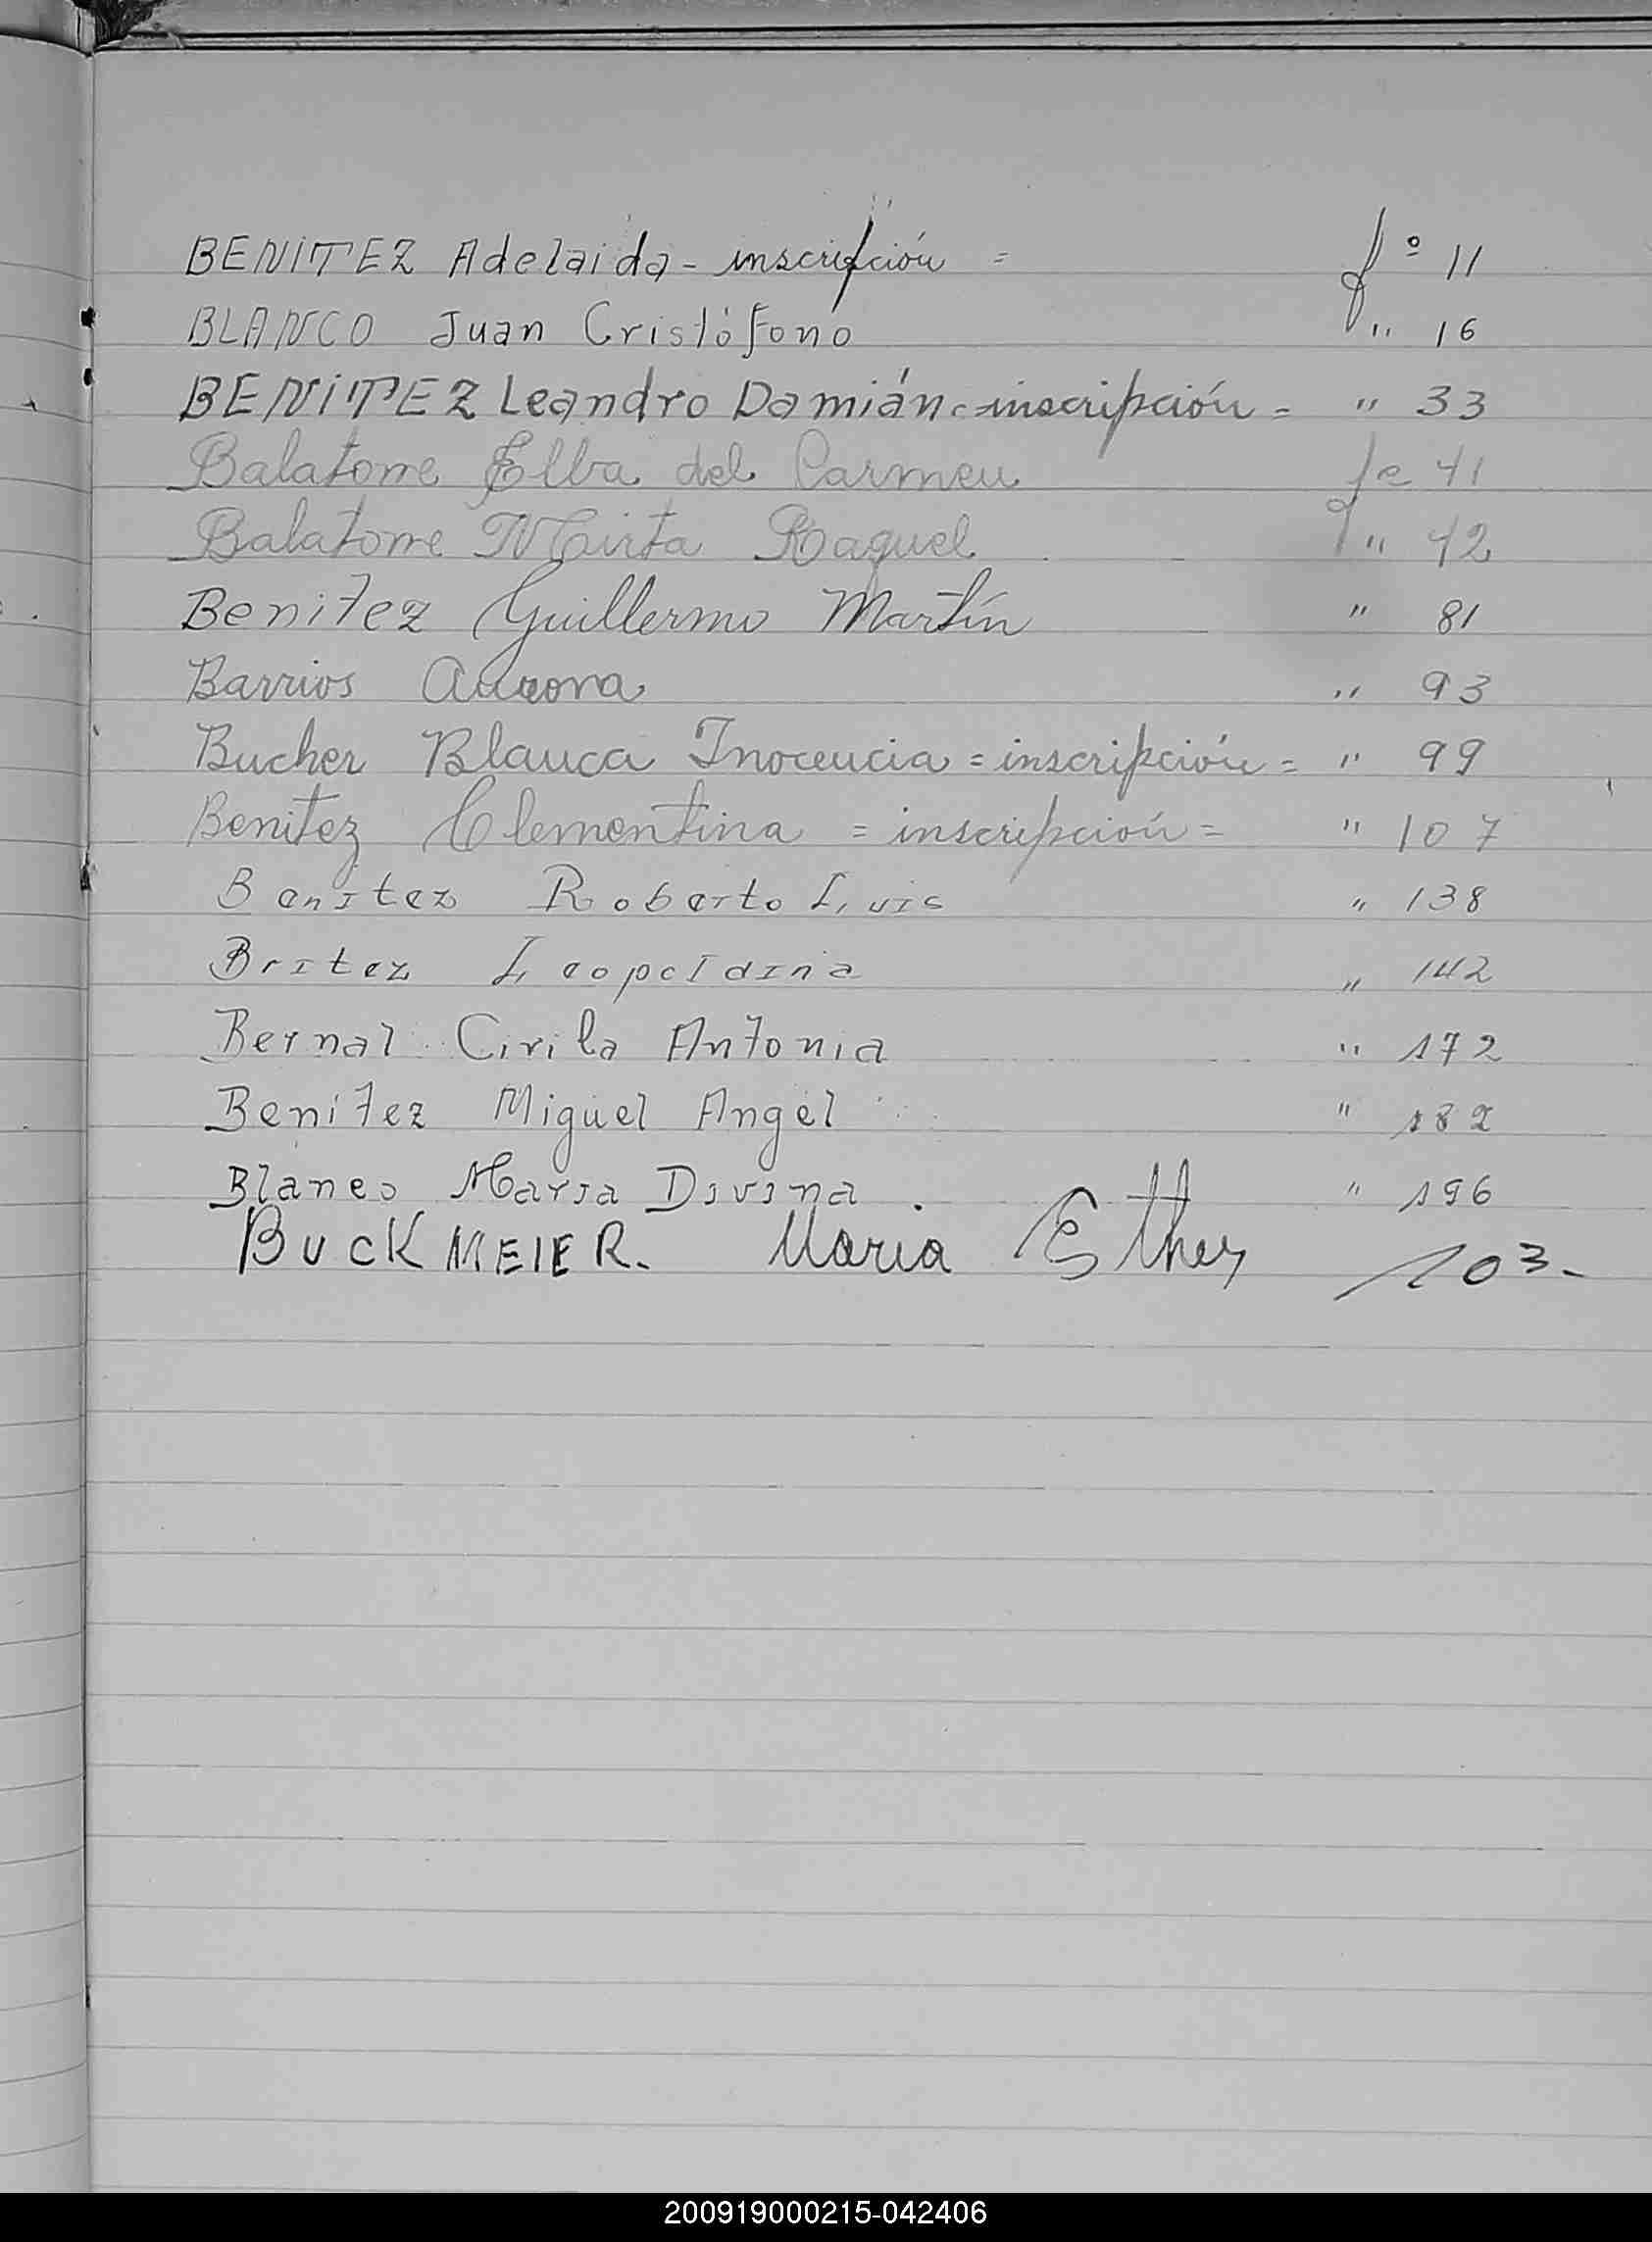 BENITEZ Adelaida - inscripción = fº 11
BLANCO Juan Cristófono " 16
BENITEZ Leandro Damián = inscripción = " 33
Balatorre Elba del Carmen fe 41
Balatorre Mirta Raquel " 42
Benitez Guillermo Martín " 81
Barrios Aurora " 93
Bucher Blanca Inocencia = inscripción = " 99
Benitez Clementina = inscripción = " 107
Benitez Roberto Luis " 138
Britez Leopoldina " 142
Bernal Cirila Antonia " 172
Benitez Miguel Angel " 182
Blanco Maria Divina . " 196
BUCKMEIER. Maria Esther 103-
200919000215-042406